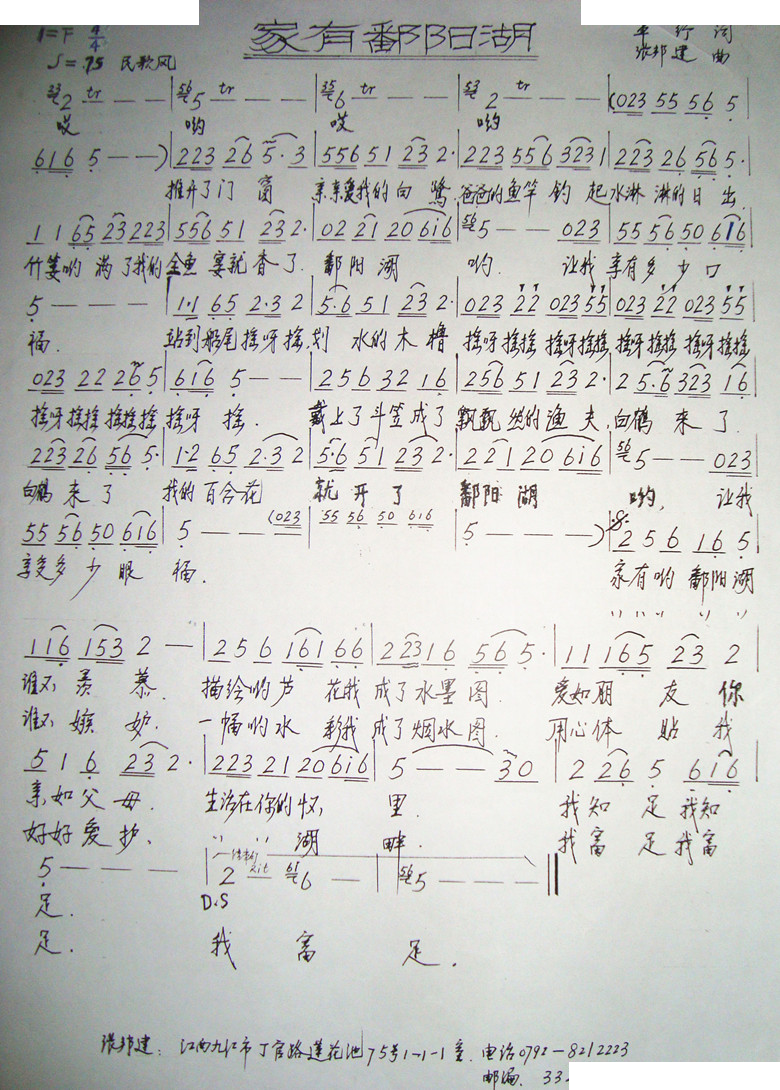 1=F 4/4
家有鄱阳湖
词
♩=75 民歌风
张邦建 曲
2 tr — — — | 5 tr — — — | 6 tr — — — | 2 tr — — — | (023 55 56 5
哎 哟 哎 哟
616 5 — —) | 223 26 5· 3 | 556 51 23 2· | 223 556 323 1 | 223 26 56 5·
推开了门 窗 亲亲爱我的白 鹭 爸爸的鱼竿 钓 起水淋 淋的日 出
11 65 23 223 | 556 51 23 2· | 02 21 20 616 | 5 — — 023 | 55 56 50 616
竹篓哟 满了我的全鱼 宴就香了. 鄱阳湖 哟. 让我 享有多 少口
5 — — — | 1·1 65 2·3 2 | 5·6 51 23 2· | 023 22 023 55 | 023 22 023 55
福. 站到船尾摇呀摇, 划 水的木橹 摇呀摇摇 摇呀摇摇 摇呀摇摇 摇呀摇摇
023 22 226 5 | 616 5 — — | 256 32 16 | 256 51 23 2· | 2 5·6 323 16
摇呀摇摇 摇摇摇 摇呀 摇. 戴上了斗笠成了 飘飘 然的渔 夫, 白鹤 来 了
223 26 56 5· | 1·2 65 2·3 2 | 5·6 51 23 2· | 22 1 20 616 | 5 — — 023
白鹤 来 了 我的百合花 就开了 鄱阳湖 哟, 让我
55 56 50 616 | 5 — — (023 | 55 56 50 616 | 5 — — —) | 256 16 5
享受多 少 眼 福. 家有哟 鄱阳湖
116 153 2 — | 256 161 66 | 2 23 16 56 5· | 11 165 23 2
谁不 羡 慕. 描绘哟芦 花我 成了水墨图. 爱如朋 友 你
谁不 嫉 妒. 一幅哟水 彩我 成了烟水图. 用心体 贴 我
516 23 2· | 223 21 20 616 | 5 — — 30 | 2 26 5 616
亲如父母. 生活在你的怀 里. 我知 足 我知
好好爱护、 〃 〃 湖 畔. 我富 足 我富
5 — — — | 2 — 6 — | 5 — — — ‖
足. D.S
足. 我 富 足.
张邦建: 江西九江市丁官路莲花池75号1-1-1室. 电话0792—8212223
邮编. 33